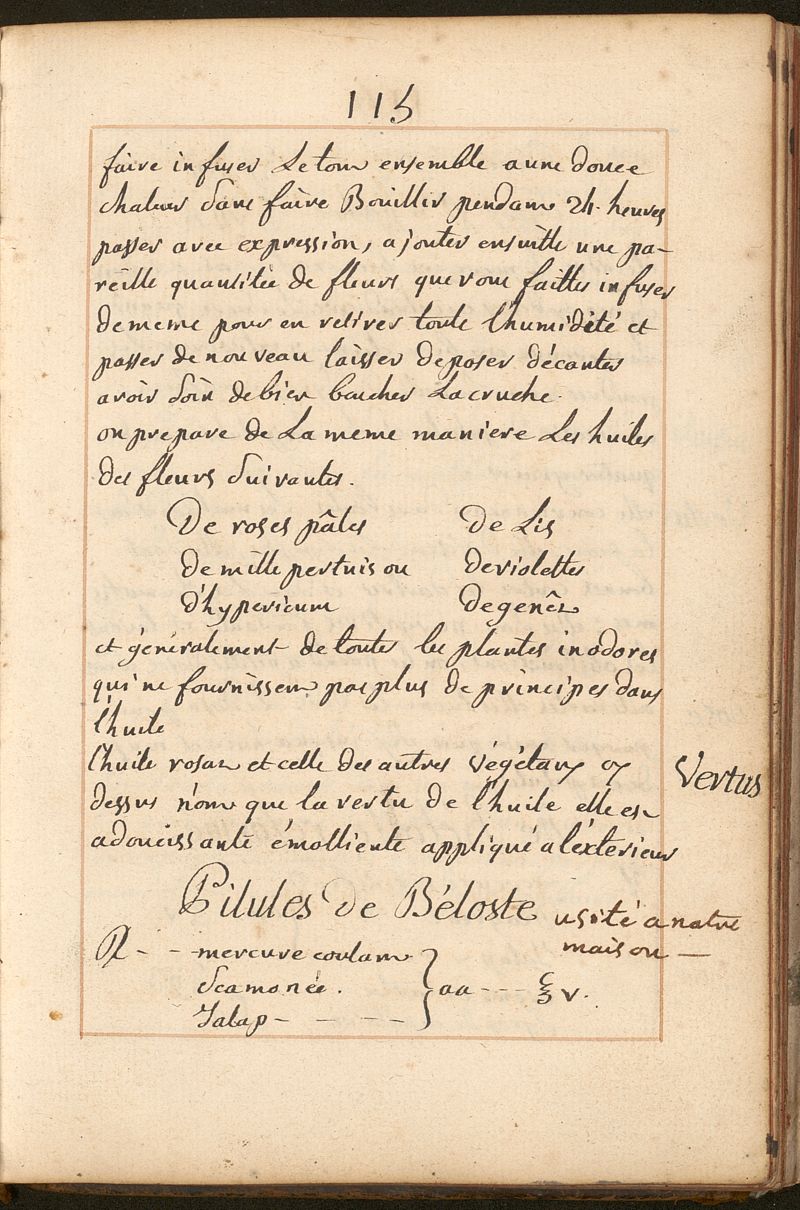 115
faire infuser Le tout ensemble a une douce
chaleur sans faire Bouillir pendant 24. heures
passer avec expression, ajouter ensuitte une pa-
reille quantitée de fleurs que vous faittes infuser
de meme pour en retirer toute l'humidité et
passer de nouveau laisser deposer décanter
avoir soin de bien boucher La cruche.
on prepare de La meme maniere Les huiles
des fleurs suivantes.
De roses pâles de Lis
de mille pertuis ou de violettes
d'hypericum de genêt
et géneralement de toutes les plantes inodores
qui ne fournissent pas plus de principes dans
l'huile
l'huile rosat et celle des autres végétaux cy Vertus
dessus n'ont que la vertu de l'huile elle est
adoucissante émolliente appliqué a l'éxterieur
Pilules de Béloste usité a notre
maison —
℞ - - mercure coulant
Scamonée. } aa - - - ℥ v.
Jalap - - - -